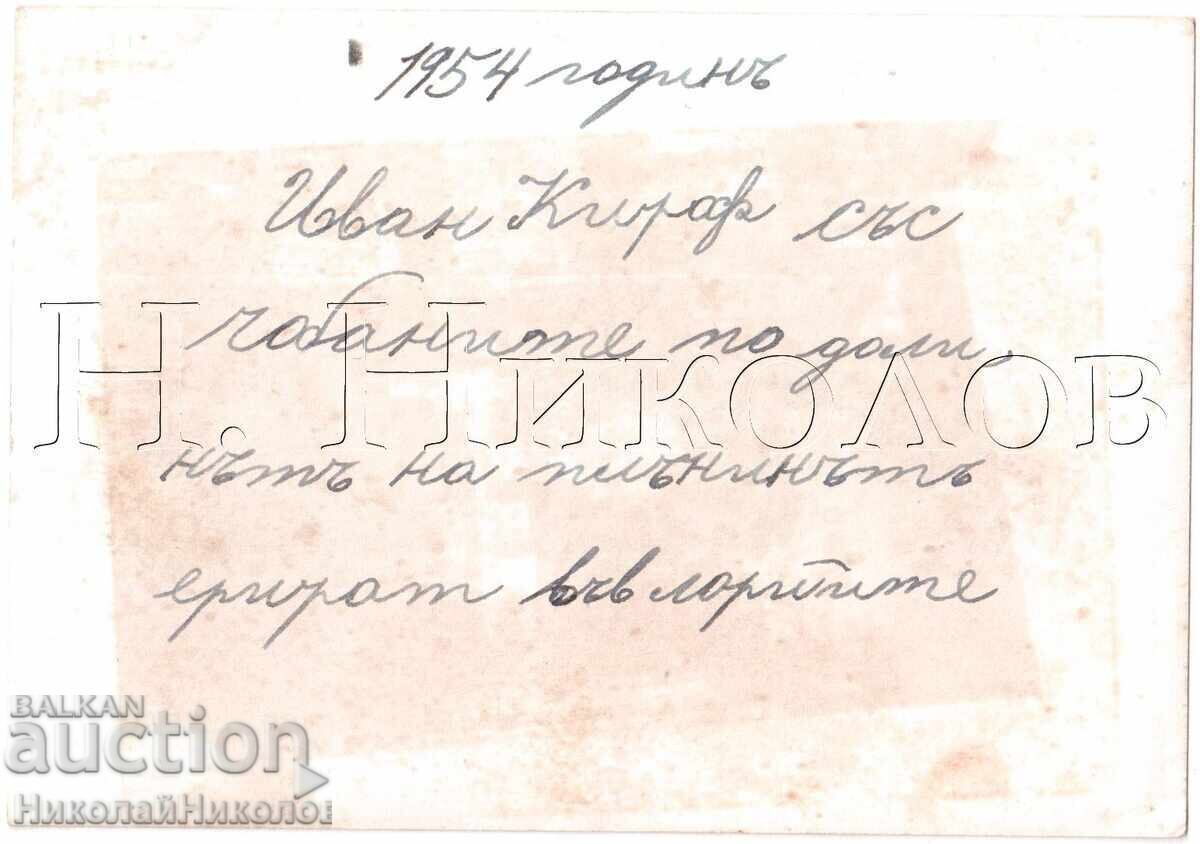 1954 годинъ
Иван Кираф със
чобаните по доли,
нътъ на плънинътъ
ерират във лорггите
Н. Николов
BALKAN
auction
НиколайНиколов